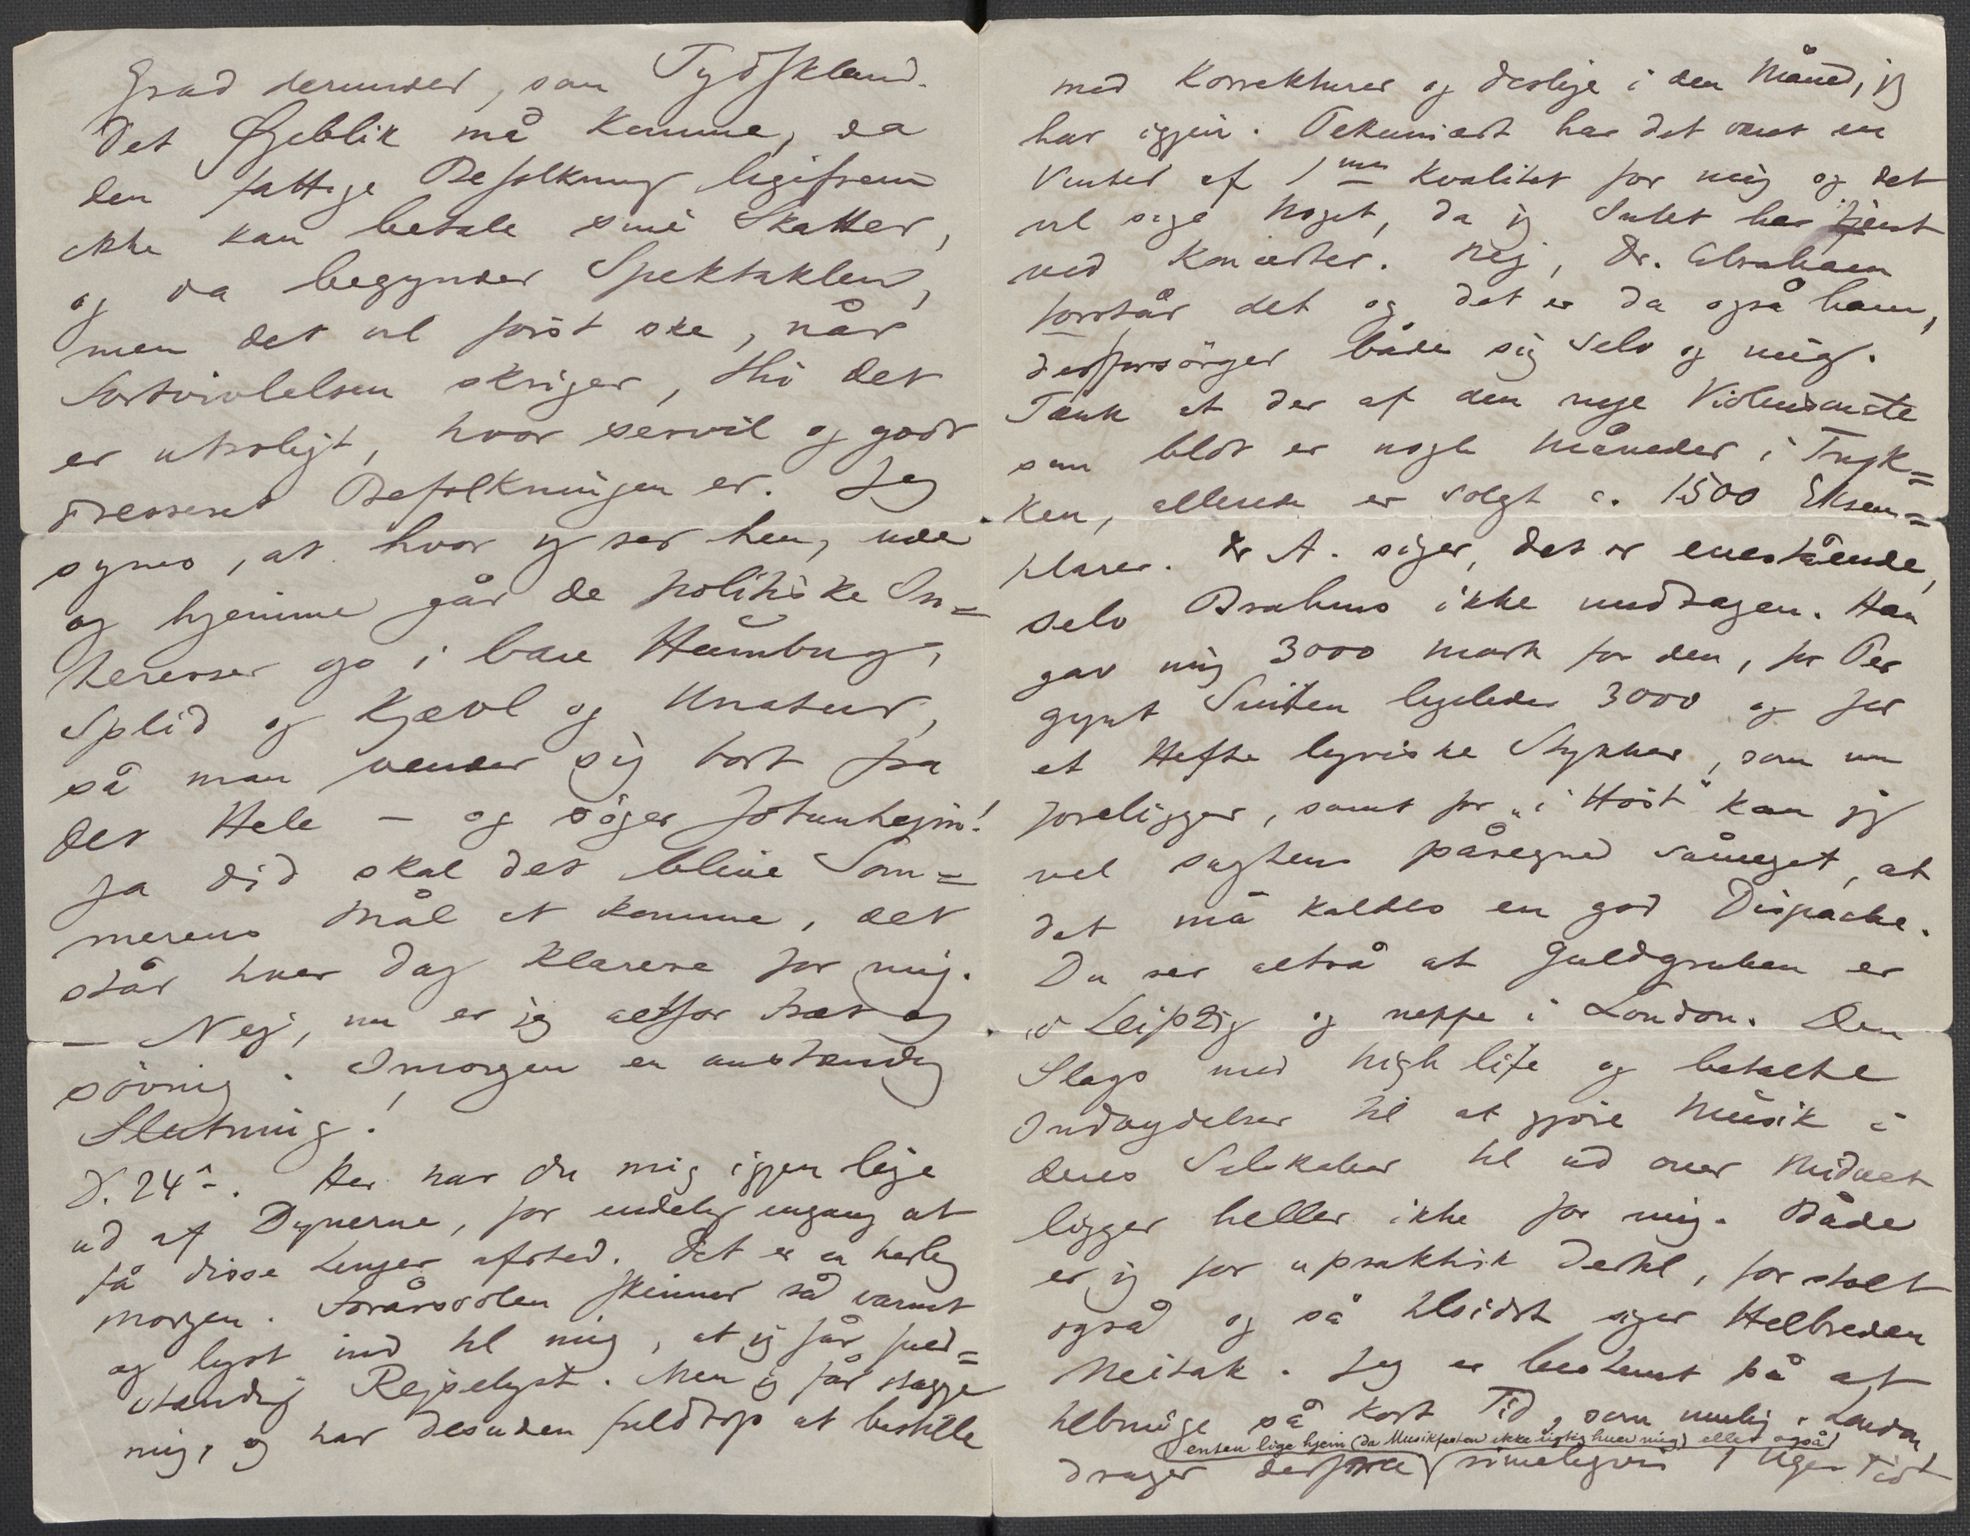 Grad derunder, som Tydskland.
Det Øjeblik må komme, da
den fattige Befolkning ligefrem
ikke kan betale sine Skatter,
og da begynder Spektaklen,
men det vil först ske, når
Fortvivlelsen skriger, thi det
er utroligt, hvor servil og godt
dresseret Befolkningen er. Jeg
synes, at hvor jeg ser hen, ude
og hjemme går de politiske In=
teresser op i bare Humbug,
Splid og Kjævl og Unatur,
så man vender sig bort fra
det Hele – og söger Jotunhejm!
Ja did skal det blive Som=
merens Mål at komme, det
står hver Dag klarere for mig.
– Nej, nu er jeg altfor træt og
sövnig. Imorgen en anstændig
Slutning!
D. 24de. Her har du mig igjen lige
ud af Dynerne, for endelig engang at
få disse Linjer afsted. Det er en herlig
Morgen. Forårssolen skinner så varmt
og lyst ind til mig, at jeg får fuld=
stændig Rejselyst. Men jeg får stagge
mig, og har desuden fuldtop at bestille
med Korrekturer og deslige i den Måned, jeg
har igjen. Pekuniært har det været en
Vinter af 1ma Kvalitet for mig og det
vil sige Noget, da jeg Intet har tjent
ved Koncerter. Nej, Dr. Abraham
forstår det og det er da også ham,
der forsörger både sig selv og mig.
Tænk at der af den nye Violinsonate
som blot er nogle Måneder i Tryk=
ken, allerede er solgt c. 1500 Eksem=
plarer. Dr A. siger, det er enestående,
selv Brahms ikke undtagen. Han
gav mig 3000 Mark for den, for Per
gynt Suiten ligeledes 3000 og for
et Hefte lyriske Stykker, som nu
foreligger, samt for „i Höst“ kan jeg
vel sagtens påregne såmeget, at
det må kaldes en god Dispache.
Du ser altså at Guldgruben er
i Leipzig og neppe i London. Den
Slags med high life og betalte
Indbydelser til at gjöre Musik i
deres Selskaber til ud over Midnat
ligger heller ikke for mig. Både
er jeg for upraktisk dertil, for stolt
også og så tilsidst siger Helbreden
Neitak. Jeg er bestemt på at
tilbringe så kort Tid, som mulig i London,
enten lige hjem (da Musikfesten ikke rigtig huer mig) eller også
drager derfra rimeligvis 1 Uges Tid